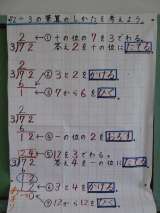 72÷3の筆算のしかたを考えよう。
2
3)72 ←①十の位の7を3でわる。
答え2を十の位にたてる
2
3)72 ←②3と2をかける
6
1 ←③7から6をひく
2
3)72
6
12 ←④一の位の2をおろす
24 ←⑤12を3でわる。
3)72 答え4を一の位にたてる
6
12
12 ←⑥3と4をかける
0 ←⑦12から12をひく